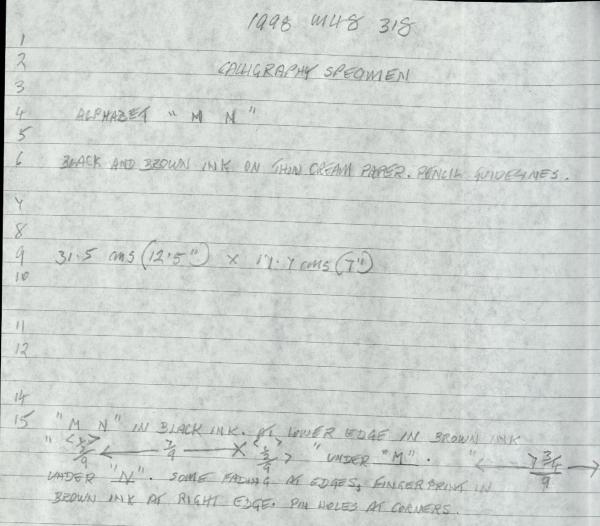 1998 M48 318
1
2 CALLIGRAPHY SPECIMEN
3
4 ALPHABET " M N "
5
6 BLACK AND BROWN INK ON THIN CREAM PAPER. PENCIL GUIDELINES.
7
8
9 31.5 cms (12.5") x 17.7 cms (7")
10
11
12
14
15 "M N" IN BLACK INK. AT LOWER EDGE IN BROWN INK
" < > 9 ← 7/9 → X < > 9 " UNDER "M". " ← 7 3/4 9 →
UNDER "N". SOME FADING AT EDGES, FINGERPRINT IN
BROWN INK AT RIGHT EDGE. PIN HOLES AT CORNERS.